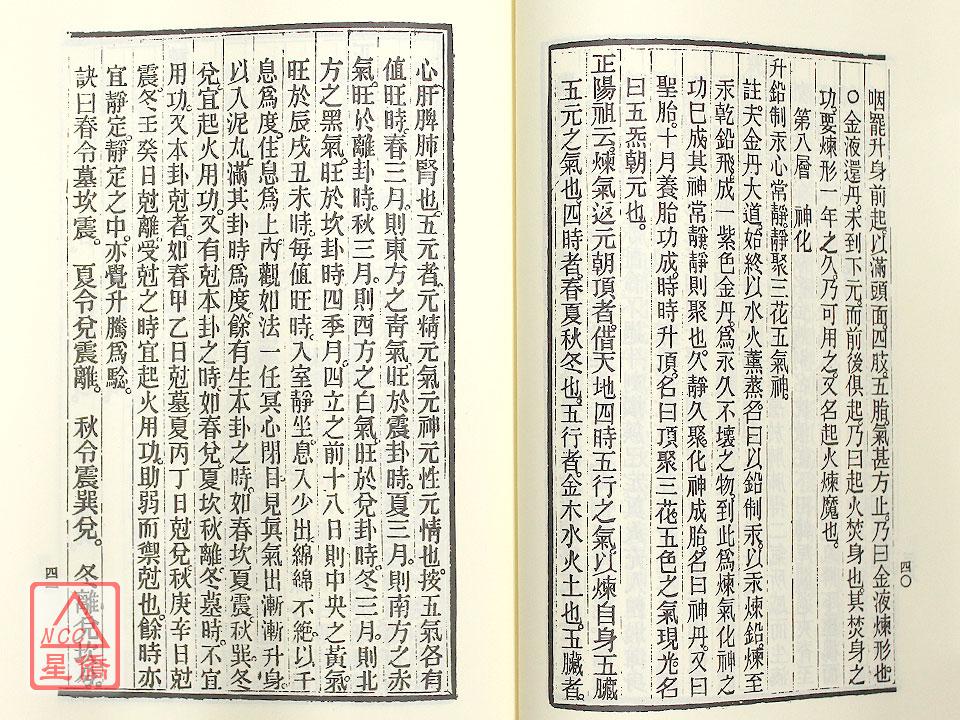 咽罷升身前起。以滿頭面。四肢。五臟。氣甚方止。乃曰金液煉形也
○金液還丹。未到下元。而前後俱起。乃曰起火焚身也。其焚身之
功。要煉形一年之久。乃可用之。又名起火煉魔也。
第八層 神化
升鉛制汞心常靜。靜聚三花五氣神。
註夫金丹大道。始終以水火薰蒸。名曰以鉛制汞。以汞煉鉛。煉至
汞乾鉛飛。成一紫色金丹。為永久不壞之物。到此為煉氣化神之
功已成。其神常靜。靜則聚也。久靜久聚。化神成胎。名曰神丹。又曰
聖胎。十月養胎功成。時時升頂。名曰頂聚三花。五色之氣現光。名
曰五炁朝元也。
正陽祖云。煉氣返元朝頂者。借天地四時五行之氣。以煉自身五臟
五元之氣也。四時者。春夏秋冬也。五行者。金木水火土也。五臟者。
四〇
心肝脾肺腎也。五元者。元精元氣元神元性元情也。按五氣各有
值旺時。春三月。則東方之青氣。旺於震卦時。夏三月。則南方之赤
氣。旺於離卦時。秋三月。則西方之白氣。旺於兌卦時。冬三月。則北
方之黑氣。旺於坎卦時。四季月。四立之前十八日。則中央之黃氣。
旺於辰戌丑未時。每值旺時。入室靜坐。息入少出。綿綿不絶。以千
息為度。住息為上。內觀如法。一任冥心閉目。見真氣出。漸漸升身
以入泥丸。滿其卦時為度。餘有生本卦之時。如春坎夏震秋巽。冬
兌。宜起火用功。又有尅本卦之時。如春兌。夏坎秋離。冬墓時。不宜
用功。又本卦尅者。如春甲乙日尅墓。夏丙丁日尅兌。秋庚辛日尅
震。冬壬癸日尅離。受尅之時。宜起火用功。助弱而禦尅也。餘時亦
宜靜定。靜定之中。亦覺升騰為騐。
訣曰春令墓坎震。 夏令兌震離。 秋令震巽兌。 冬離兌坎
四一
NCC
星僑